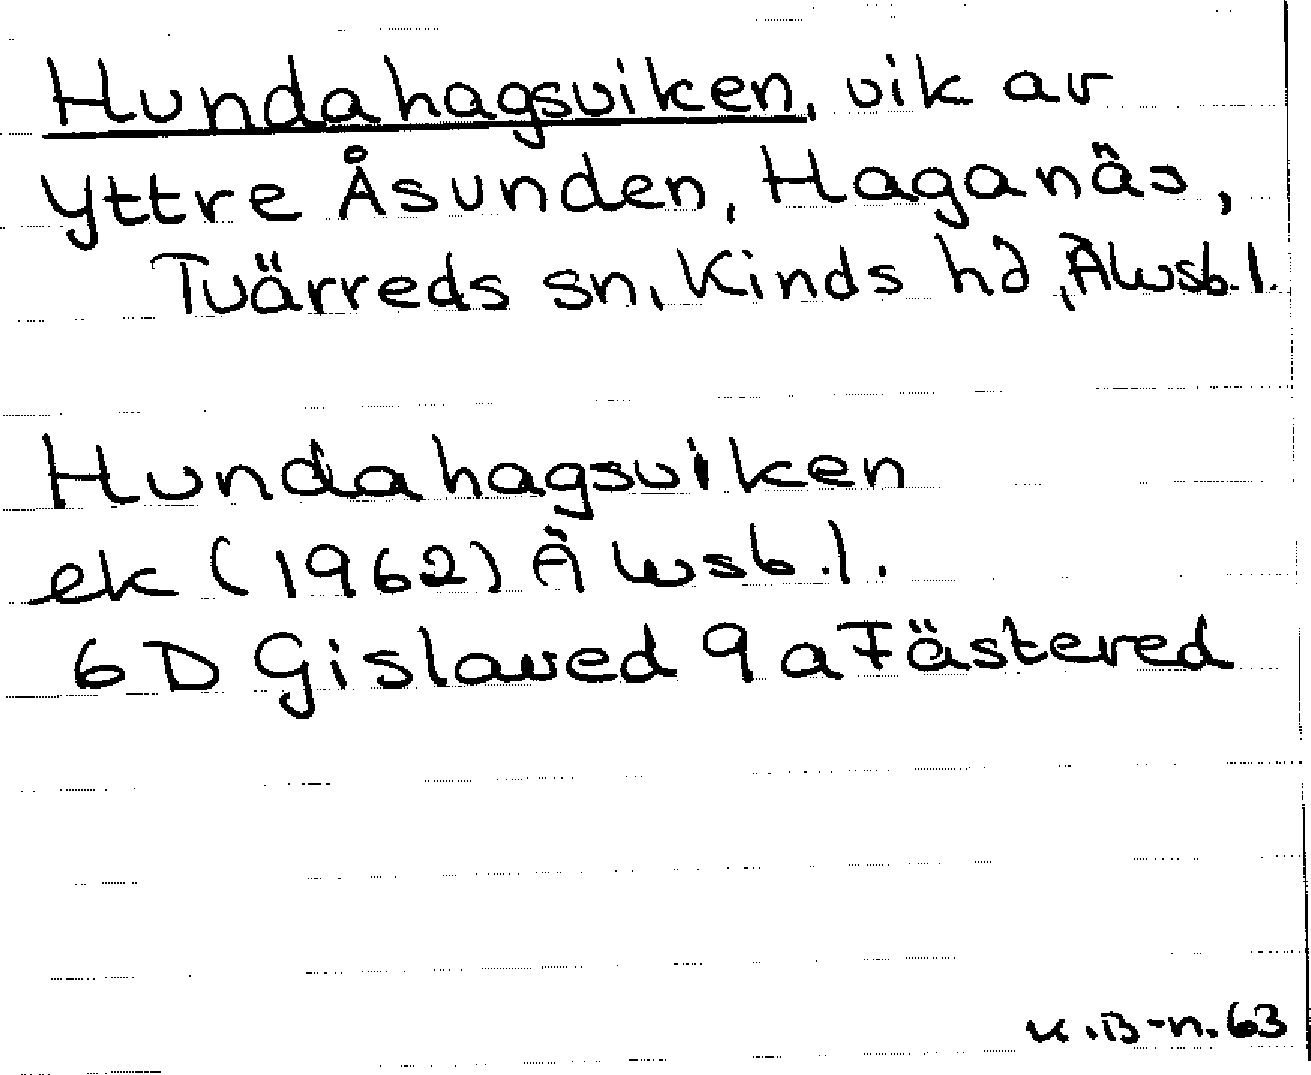 Hundahagsviken, vik av
Yttre Åsunden, Haganäs,
Tvärreds sn, Kinds hd, Älvsb.l.
Hundahagsviken
ek (1962) Älvsb.l.
6D Gislaved 9a Fästered
K.B-n.63